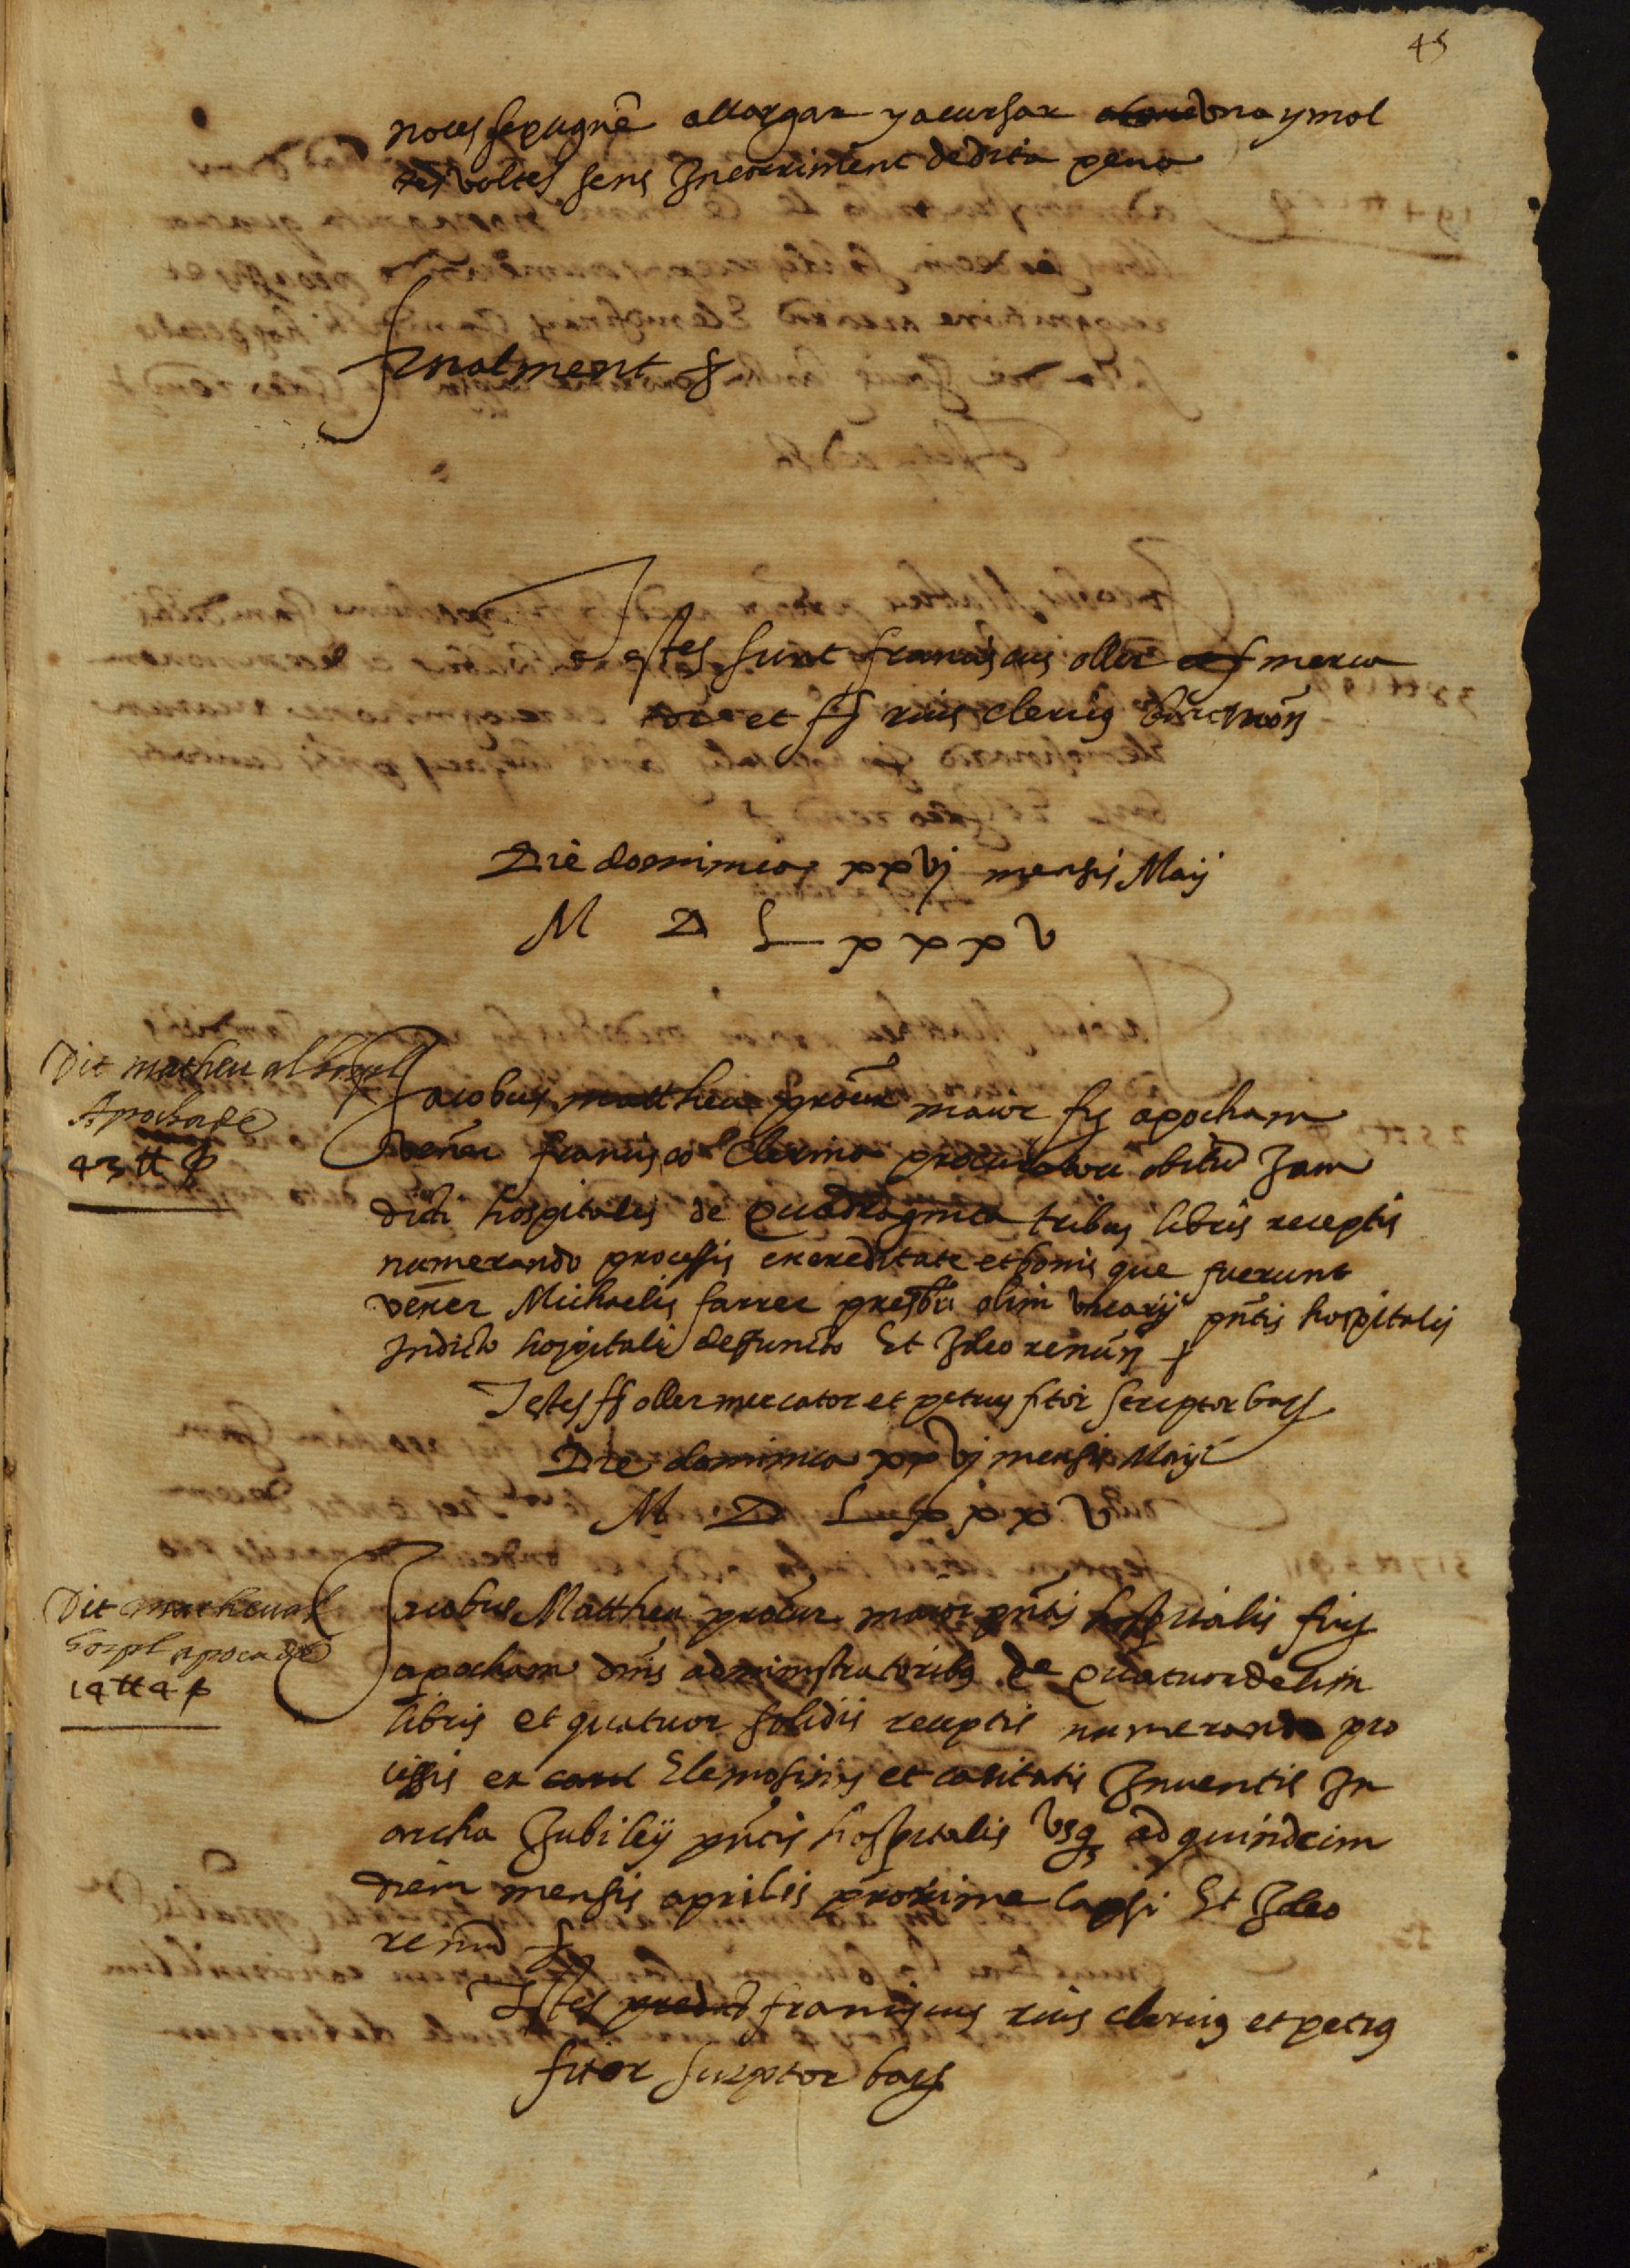 45
noves se pugne allargar y acursar una y mol
tes voltes sens Incorriment de dita pena
Finalment &
Testes sunt franciscus oller merca
tor et ff rius clericus
Die dominica xxvj mensis Maij
M D L x x x v
Dit matheu al hospl
Apocha de
43 tt ß
Jacobus mattheu procur maior fis apocham
vener francisco Clerina procuratori obitu Jam
dicti hospitalis de Quadraginta tribus libris receptis
numerando processis ex ereditate et bonis que fuerunt
vener Michaelis farrer presbri olim vicarij pntis hospitalis
In dicto hospitali defuncto Et Ideo renun &
Testes ff oller mercator et petrus fitor scriptor bars
Die dominica xxvj mensis Maij
M D L x x x v
Dit matheu al
hospl apoca de
14 tt 4 ß
Jacobus Mattheu procur maior pntis hospitalis fir
apocham dnis administratoribus de Quatuordecim
libris et quatuor solidis receptis numerando pro
cessis ex Elemosinis et caritatis Inventis In
archa Jubileij pntis hospitalis usq ad quindecim
diem mensis aprilis proxime lapsi Et Ideo
renun &
Testes franciscus rius clericus et petrus
fitor scriptor bars